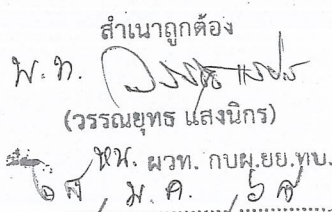 สำเนาถูกต้อง
พ.ท.
(วรรณยุทธ แสงนิกร)
หน. ผวท. กบผ.ยย.ทบ.
ม.ค.